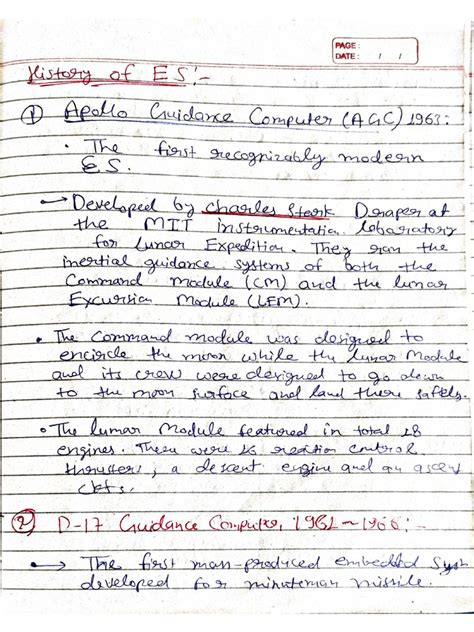 PAGE :
DATE : / /
History of ES:-
① Apollo Guidance Computer (AGC) 1963:
• The first recognizably modern
E.S.
→ Developed by Charles Stark Draper at
the MIT instrumentation laboratory
for Lunar Expedition. They ran the
inertial guidance systems of both the
Command module (CM) and the lunar
Excursion Module (LEM).
• The command module was designed to
encircle the moon while the lunar Module
and its crew were designed to go down
to the moon surface and land there safely.
• The lunar Module featured in total 18
engines. There were 16 reaction control
thrusters, a descent engine and an ascent
② D-17 Guidance Computer, 1961~1966:-
→ The first mass-produced embedded Sysm
developed for minuteman missile.